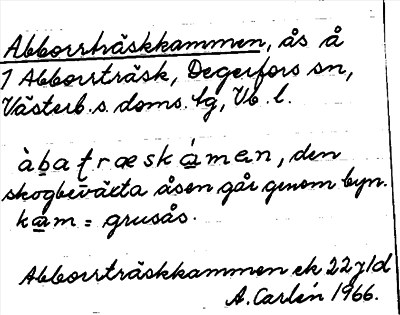 Abborrträskkammen, ås å
1 Abborrträsk, Degerfors sn,
Västerb. s. doms. lg, Vb. l.
àbatræskámen, den
skogbeväxta åsen går genom byn.
kam = grusås.
Abborrträskkammen ek 22 y1d
A. Carlén 1966.